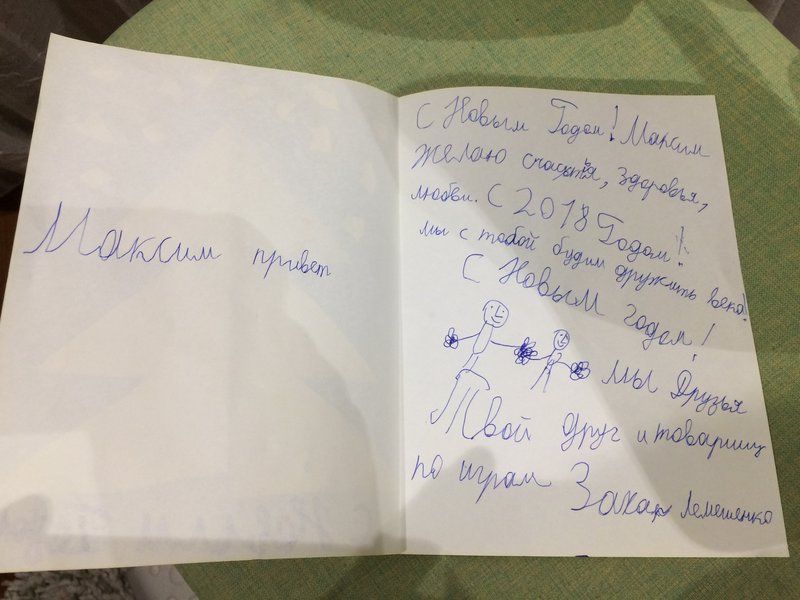 Максим привет
С Новым Годом! Максим
желаю счастья, здоровья,
любви. С 2018 Годом!
мы с тобой будим дружить века!
С Новым годом!
мы Друзья
Твой друг и товарищ
по играм Захар Лемешенко